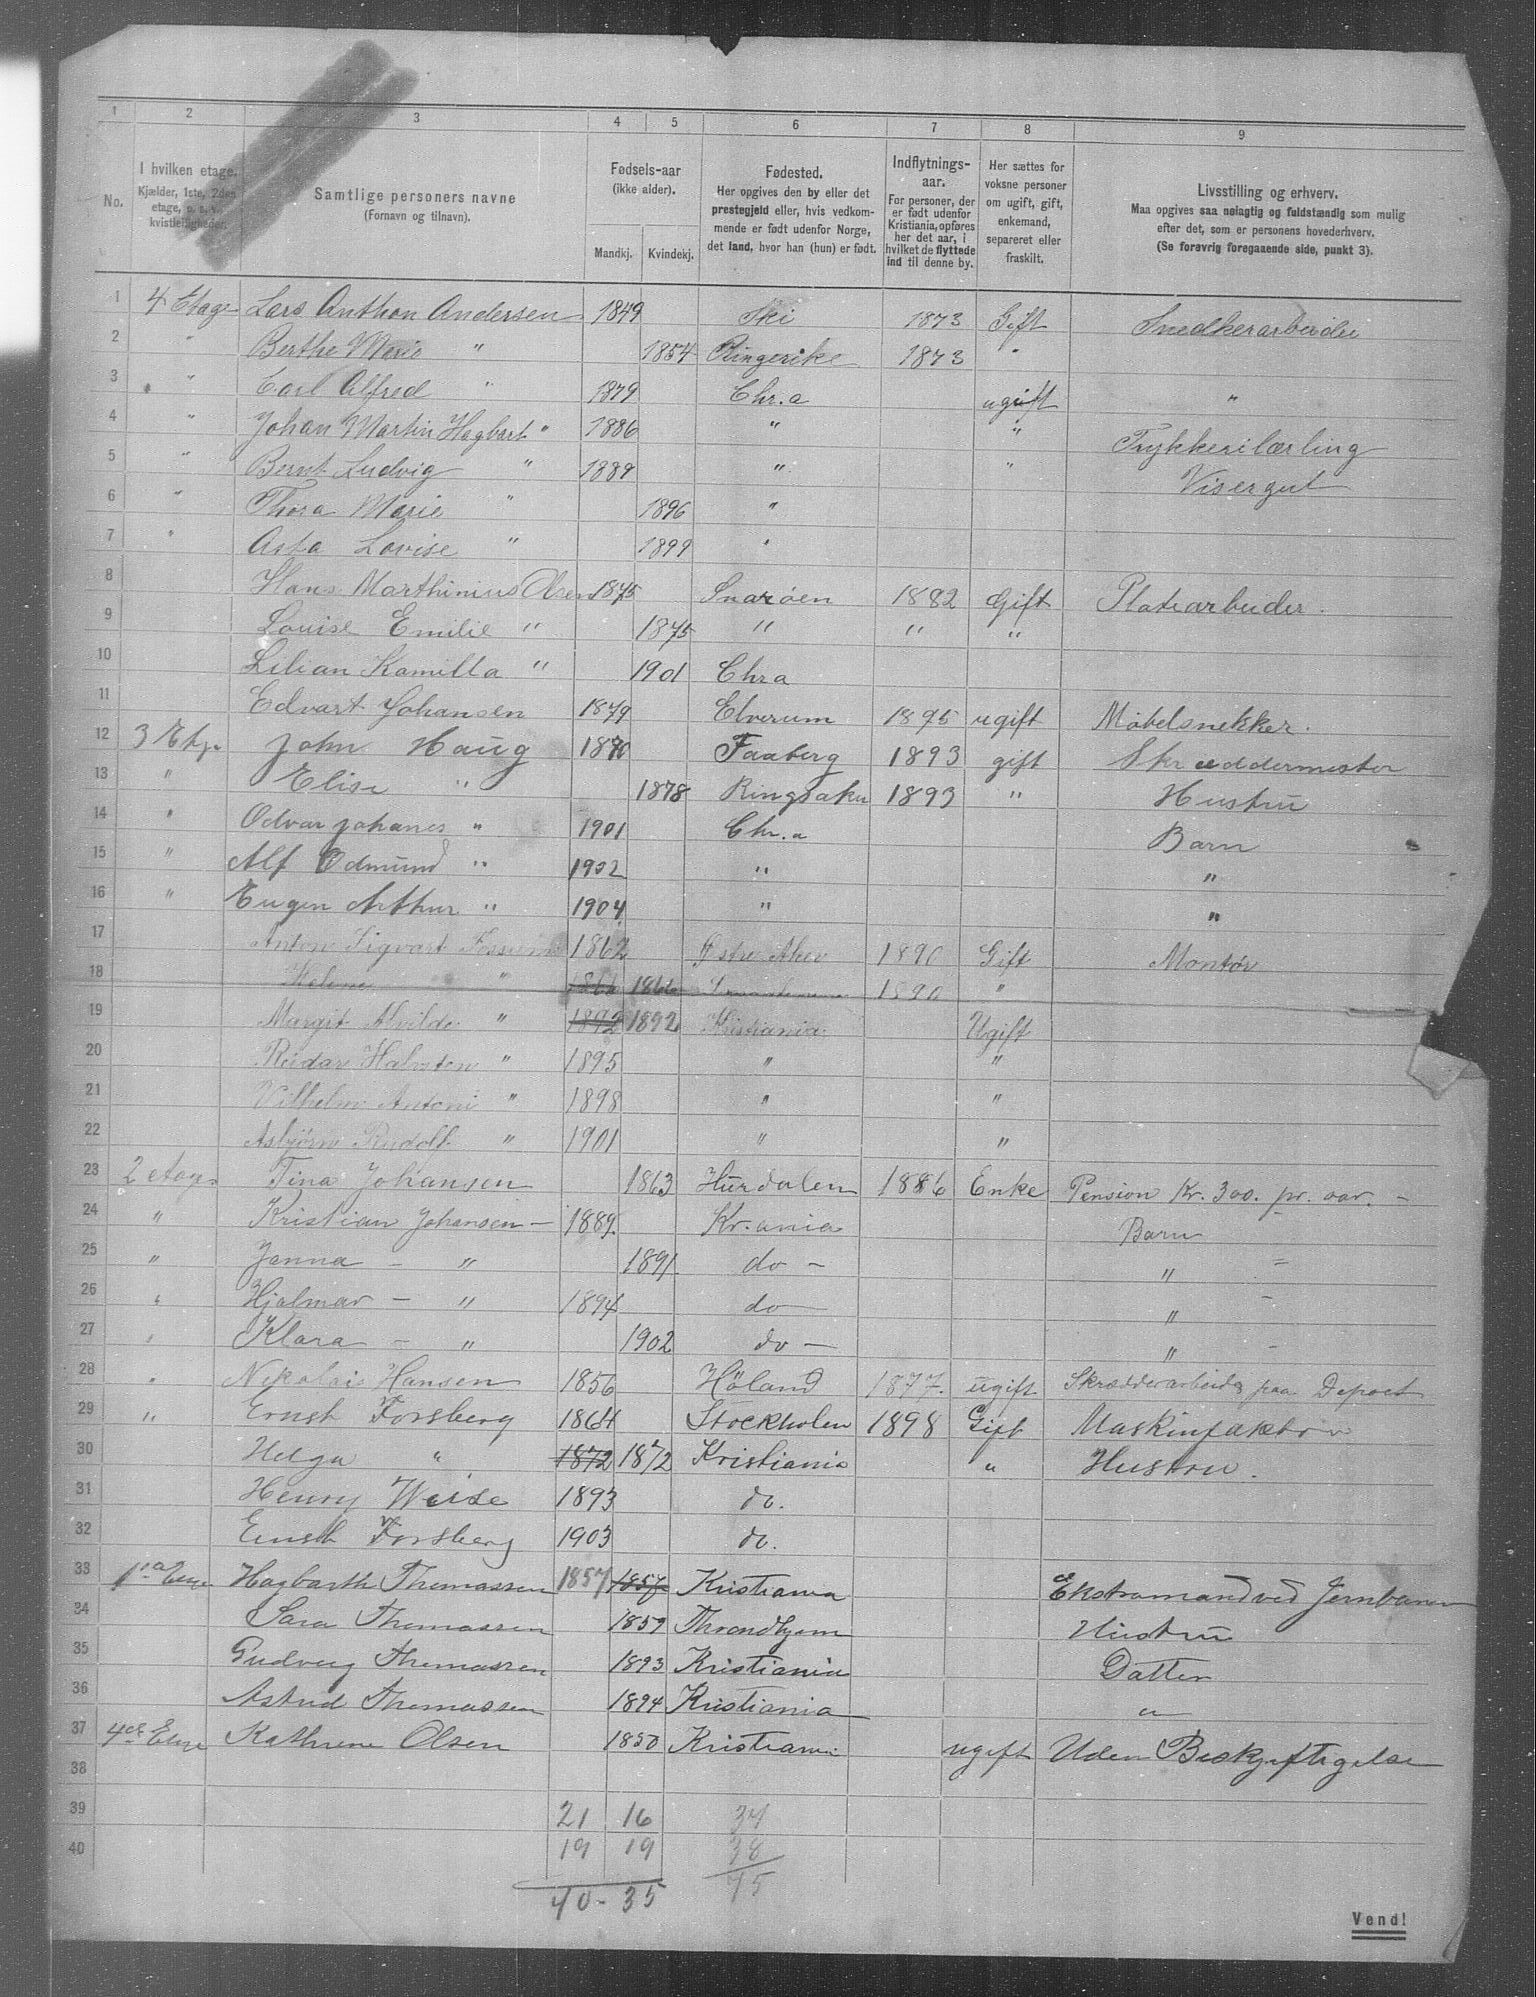 1 2 3 4 5 6 7 8 9
No.
I hvilken etage.
Kjælder, 1ste, 2den
etage, o. s. v.,
kvistleiligheder.
Samtlige personers navne
(Fornavn og tilnavn).
Fødsels-aar
(ikke alder).
Mandkj. Kvindekj.
Fødested.
Her opgives den by eller det
prestegjeld eller, hvis vedkom-
mende er født udenfor Norge,
det land, hvor han (hun) er født.
Indflytnings-
aar.
For personer, der
er født udenfor
Kristiania, opføres
her det aar, i
hvilket de flyttede
ind til denne by.
Her sættes for
voksne personer
om ugift, gift,
enkemand,
separeret eller
fraskilt.
Livsstilling og erhverv.
Maa opgives saa nøiagtig og fuldstændig som mulig
efter det, som er personens hovederhverv.
(Se forøvrig foregaaende side, punkt 3).
1 4 Etage Lars Anthon Andersen 1849 Ski 1873 Gift Snedkerarbeider
2 " Berthe Marie " 1854 Ringerike 1873 "
3 " Carl Alfred " 1879 Chr.a ugift "
4 " Johan Martin Hagbart " 1886 " " Trykkerilærling
5 " Bernt Ludvig " 1889 " " Visergut
6 " Thora Marie " 1896 "
7 " Asta Lovise " 1899 "
8 Hans Marthinius Olsen 1875 Snarøen 1882 Gift Platearbeider.
9 Louise Emilie " 1875 " " "
10 Lilian Kamilla " 1901 Chra
11 Edvart Johansen 1879 Elverum 1895 ugift Møbelsnekker.
12 3 Etg. John Haug 1870 Faaberg 1893 gift Skræddermester
13 " Elise " 1878 Ringsaker 1893 " Hustru
14 " Odvar Johanes " 1901 Chr.a Barn
15 " Alf Edmund " 1902 " "
16 " Eugen Arthur " 1904 " "
17 Anton Sigvart 1862 Østre Aker 1890 Gift Montør
18 " 1866 1866 1890 "
19 Margit Alvilde " 1892 1892 Kristiania Ugift
20 Reidar Halvsten " 1895 " "
21 Vilhelm Antoni " 1898 " "
22 Asbjørn Rudolf " 1901 " "
23 2 etage Tina Johansen 1863 Hurdalen 1886 Enke Pension Kr. 300. pr. aar. -
24 " Kristian Johansen - 1889. Kr.ania Barn
25 " Janna - " 1891. do - " =
26 " Hjalmar - " 1894 do " -
27 " Klara - " 1902 do - " -
28 " Nikolai Hansen 1856 Höland 1877. ugift Skrædderarbeider paa Depoet
29 " Ernst Forsberg 1864 Stockholm 1898 Gift Maskinfaktor
30 Helga " 1872 1872 Kristiania " Hustru.
31 Henry Weise 1893 do.
32 Ernst Forsberg 1903 do.
33 1ste Etage Hagbarth Thomassen 1857 1857 Kristiania Ekstramand ved Jernbanen
34 Sara Thomassen 1859 Throndhjem Hustru
35 Gudveig Thomassen 1893 Kristiania Datter
36 Astrid Thomassen 1894 Kristiania "
37 4de Etage Kathrine Olsen 1850 Kristiania ugift Uden Beskjeftigelse
38
39 21 16 37
40 19 19 38
40 - 35 75
Vend!